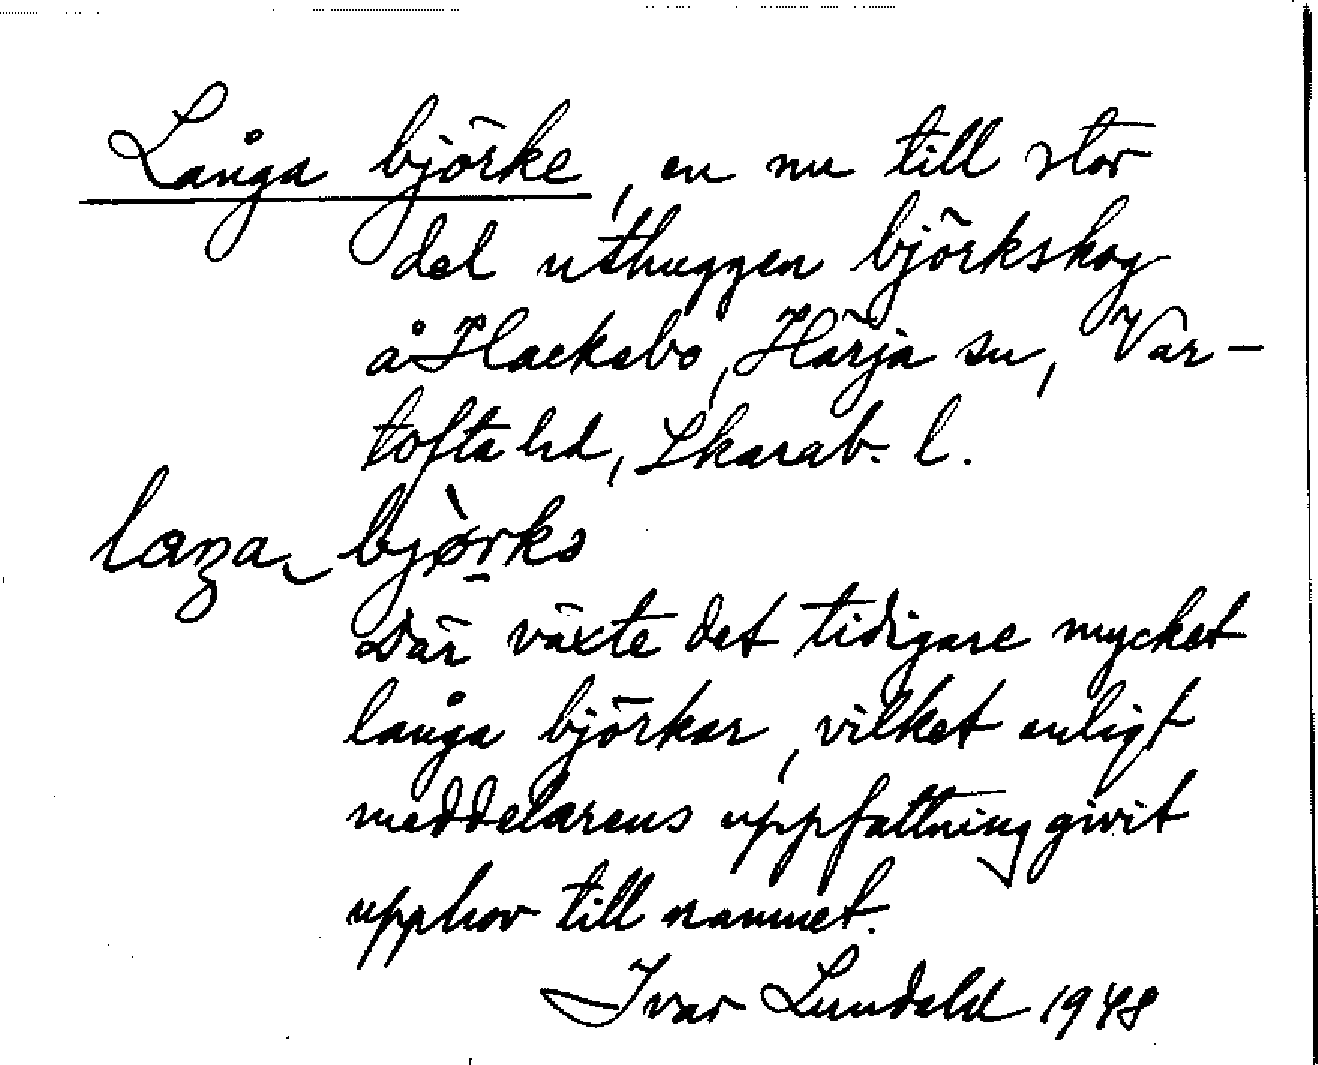 Långa björke, en nu till stor
del uthuggen björkskog
å Hacksbo, Härja sn, Var-
tofta hd, Skarab. l.
björks
Där växte det tidigare mycket
långa björkar, vilket enligt
meddelarens uppfattning givit
upphov till namnet.
Ivar Lundahl 1948